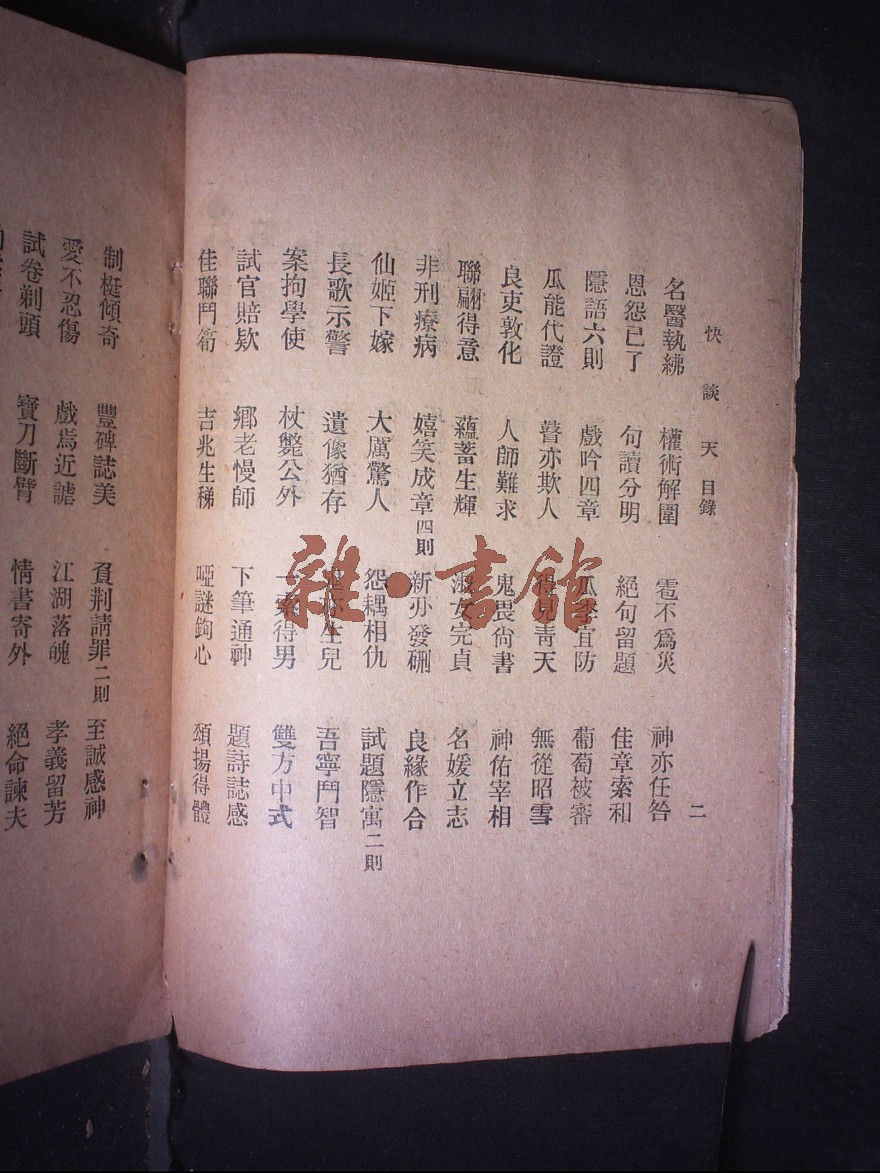 快談天目錄 二
名醫執紼 權術解圍 雹不爲災 神亦任咎
恩怨已了 句讀分明 絕句留題 佳章索和
隱語六則 戲吟四章 瓜李宜防 葡萄被審
瓜能代證 瞽亦欺人 得見青天 無從昭雪
良吏敦化 人師難求 鬼畏尙書 神佑宰相
聯翩得意 蘊蓄生輝 淑女完貞 名媛立志
非刑療病 嬉笑成章四則 新硎發硎 良緣作合
仙姬下嫁 大厲驚人 怨耦相仇 試題隱寓二則
長歌示警 遺像猶存 亦生兒 吾寧鬥智
案拘學使 杖斃公外 一索得男 雙方中式
試官賠欵 鄉老慢師 下筆通神 題詩誌感
佳聯鬥筍 吉兆生稊 啞謎鉤心 頌揚得體
制梃傾奇 豐碑誌美 負荆請罪二則 至誠感神
愛不忍傷 戲焉近謔 江湖落魄 孝義留芳
試卷剃頭 寶刀斷臂 情書寄外 絕命諫夫
雜·書館